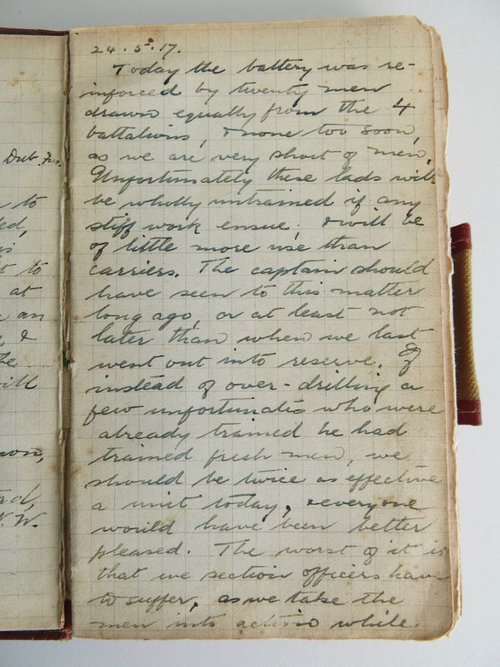 24.5.17.
Today the battery was re-
inforced by twenty men
drawn equally from the 4
battalions, & none too soon,
as we are very short of men.
Unfortunately these lads will
be wholly untrained if any
stiff work ensue, & will be
of little more use than
carriers. The captain should
have seen to this matter
long ago, or at least not
later than when we last
went out into reserve. If
instead of over-drilling a
few unfortunates who were
already trained he had
trained fresh men, we
should be twice as effective
a unit today, & everyone
would have been better
pleased. The worst of it is
that we section officers have
to suffer, as we take the
men into action while.
Dub. Fus.
to
to
at
an
&
he
will